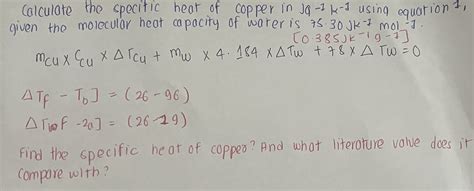 Calculate the specific heat of copper in Jg⁻¹ k⁻¹ using equation 1,
given the molecular heat capacity of water is 75.30 Jk⁻¹ mol⁻¹.
[0.385Jk⁻¹g⁻¹]
mcu x Ccu x ΔTcu + mw x 4.184 x ΔTw + 78 x ΔTw = 0
ΔTf - Tb] = (26 - 96)
f - 20] = (26 - 19)
Find the specific heat of copper? And what literature value does it
compare with?